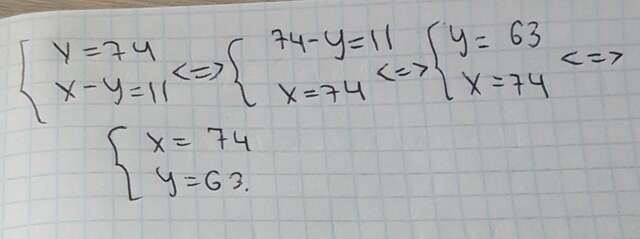 { x = 74
x - y = 11 <=> { 74 - y = 11
x = 74 <=> { y = 63
x = 74 <=>
{ x = 74
y = 63.